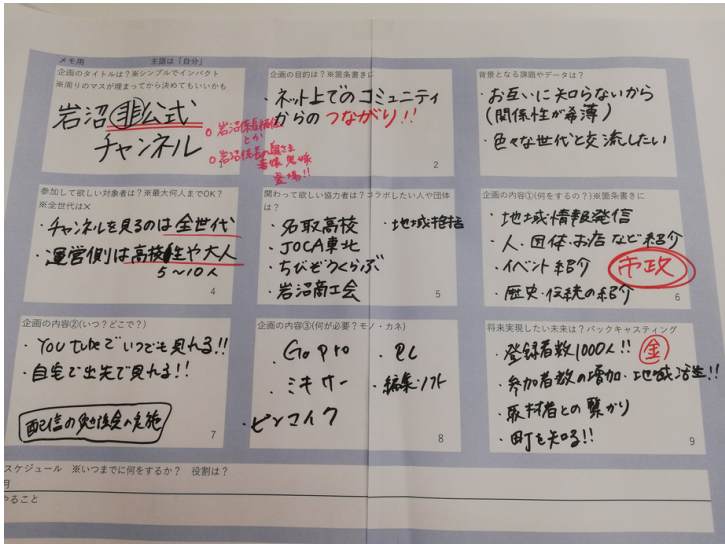 メモ用 主語は「自分」
企画のタイトルは？※シンプルでインパクト
※周りのマスが埋まってから決めてもいいかも
岩沼㊙公式
チャンネル
とか
登場!!
企画の目的は？※箇条書きに
・ネット上でのコミュニティ
からのつながり!!
2
背景となる課題やデータは？
・お互いに知らないから
(関係性が希薄)
・色々な世代と交流したい
参加して欲しい対象者は？※最大何人までOK？
※全世代は×
・チャンネルを見るのは全世代
・運営側は高校生や大人
5〜10人
4
関わって欲しい協力者は？コラボしたい人や団体
は？
・名取高校 ・地域包括
・JOCA東北
・ちびぞうくらぶ
・岩沼商工会
5
企画の内容①(何をするの？)※箇条書きに
・地域情報発信
・人・団体・お店など紹介
・イベント紹介 市政
・歴史・伝統の紹介
6
企画の内容②(いつ？どこで？)
・YouTubeでいつでも見れる!!
・自宅で出先で見れる!!
配信の勉強会の実施
7
企画の内容③(何が必要？モノ・カネ)
・GoPro ・PC
・ミキサー ・編集ソフト
・ピンマイク
8
将来実現したい未来は？バックキャスティング
・登録者数1000人!! 金
・参加者数の増加・地域活性!!
・取材者との繋がり
・町を知る!!
9
スケジュール ※いつまでに何をするか？ 役割は？
月
やること